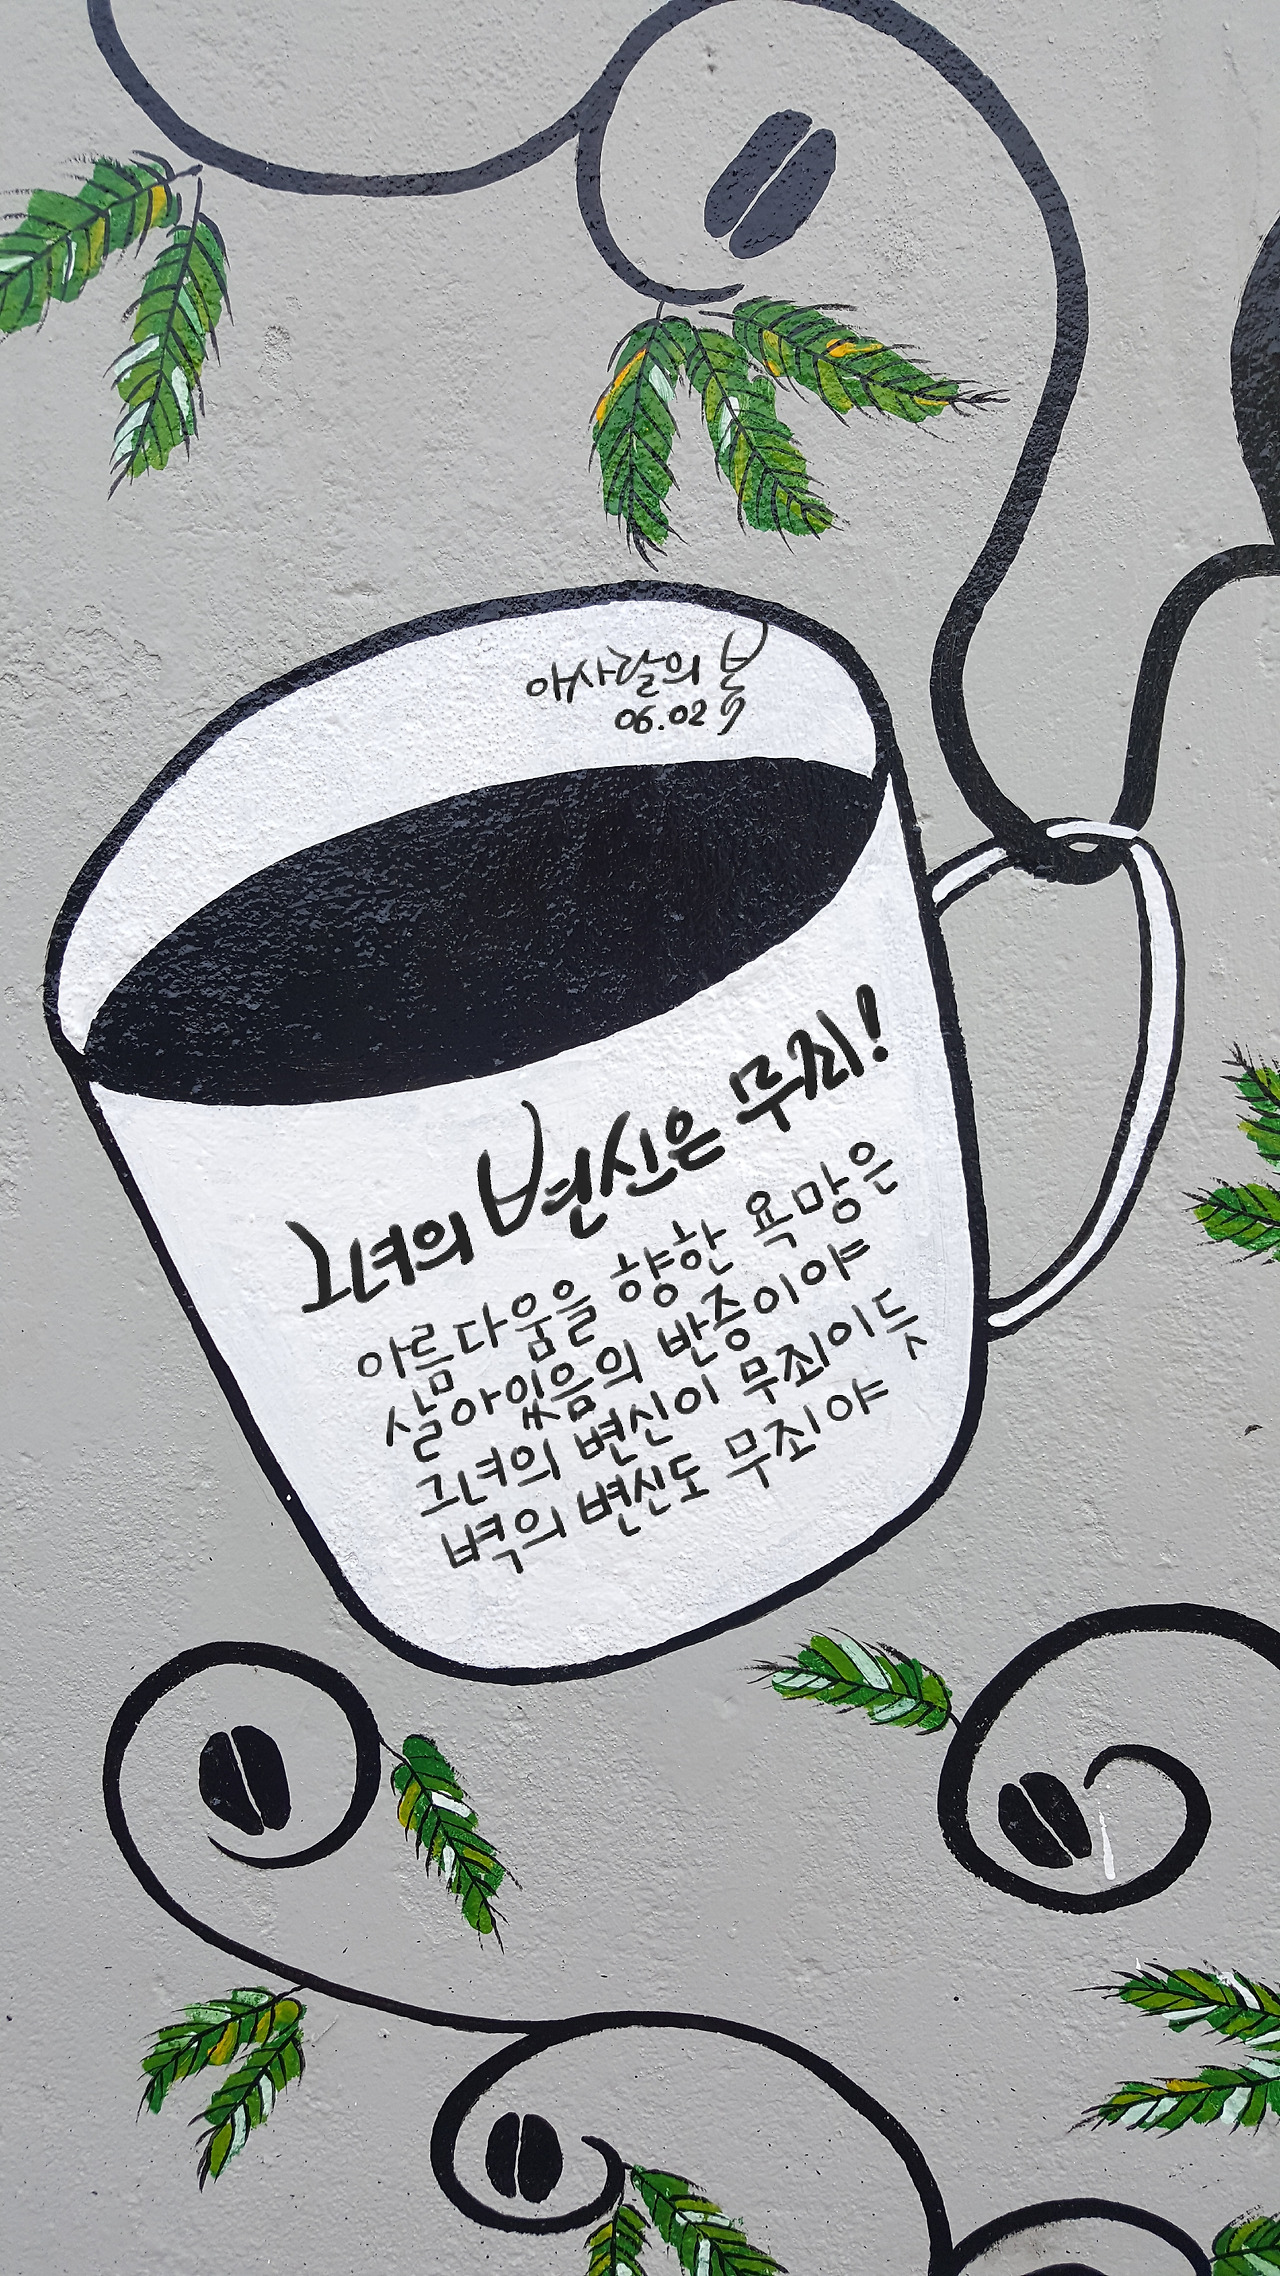 애사람의 봄
06.02
그녀의 변신은 무죄!
아름다움을 향한 욕망은
살아있음의 반증이야
그녀의 변신이 무죄이듯
벽의 변신도 무죄야